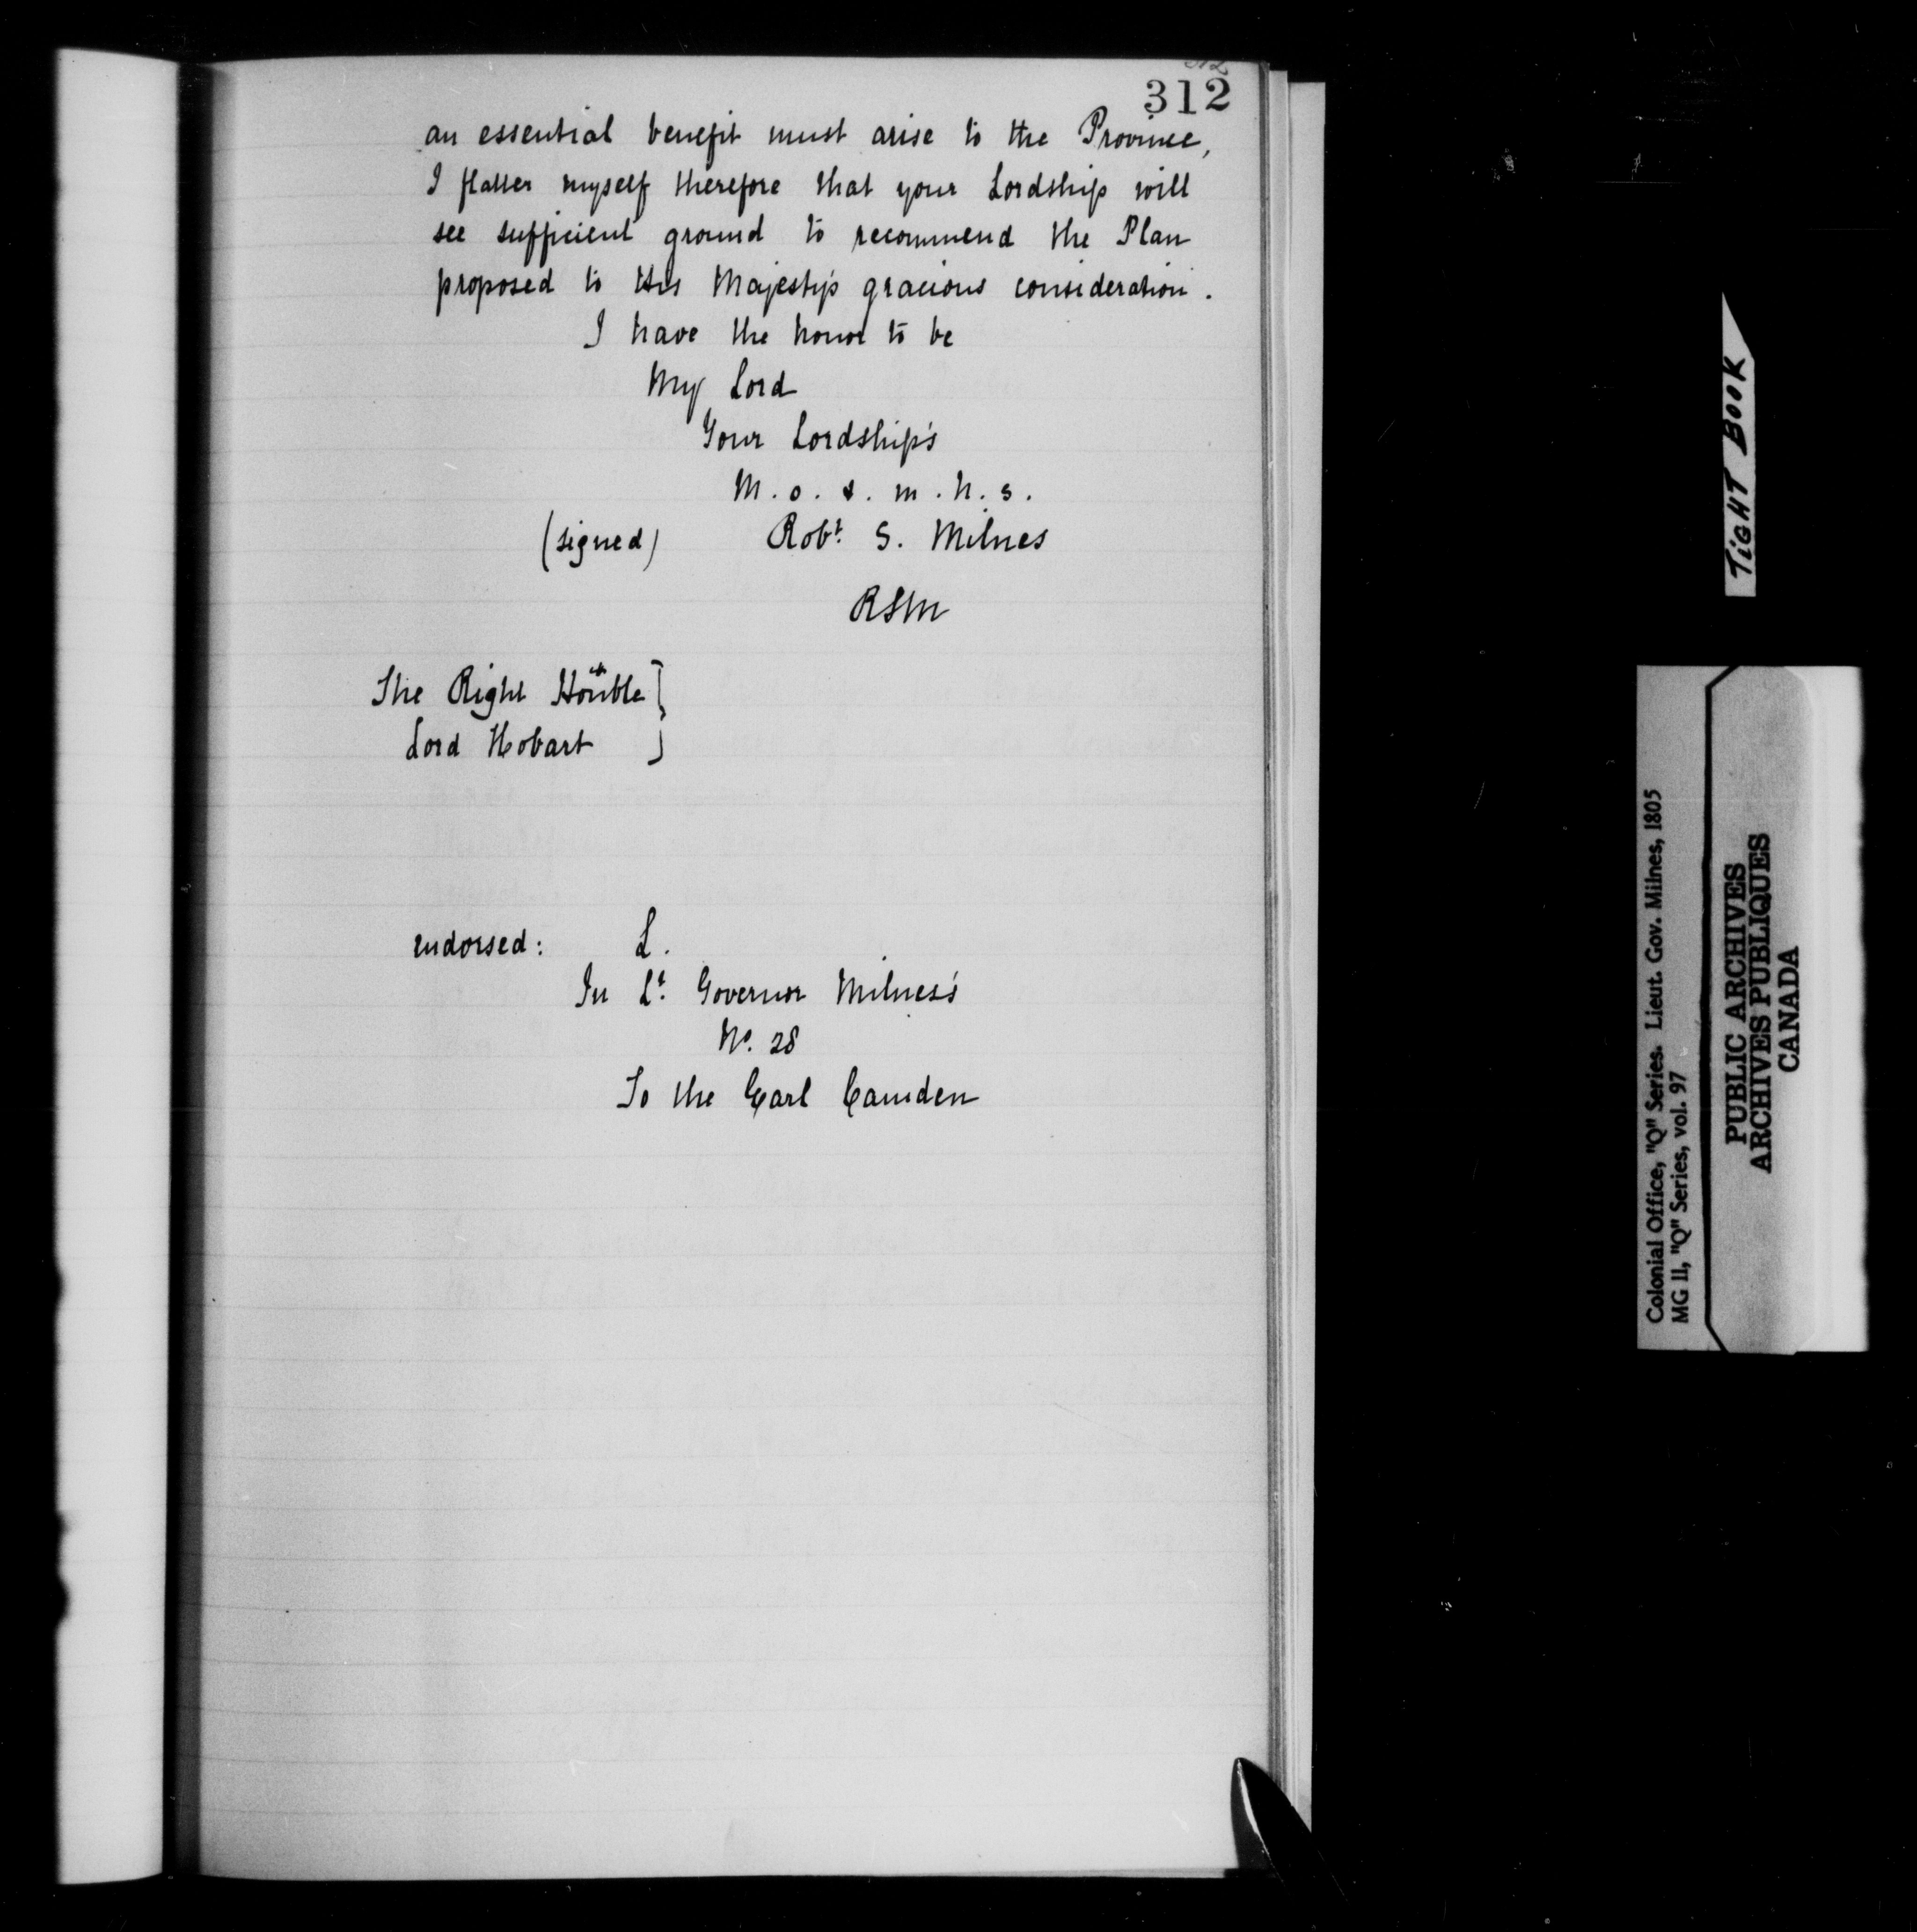 312
an essential benefit must arise to the Province,
I flatter myself therefore that your Lordship will
see sufficient ground to recommend the Plan
proposed to His Majesty's gracious consideration.
I have the honor to be
My Lord
Your Lordship's
M. o. & m. h. s.
(signed) Robt. S. Milnes
RSM
The Right Honble
Lord Hobart
endorsed: L.
In Lt. Governor Milnes's
No. 28
To the Earl Camden
TIGHT BOOK
Colonial Office, "Q" Series. Lieut. Gov. Milnes, 1805
MG 11, "Q" Series, vol. 97
PUBLIC ARCHIVES
ARCHIVES PUBLIQUES
CANADA